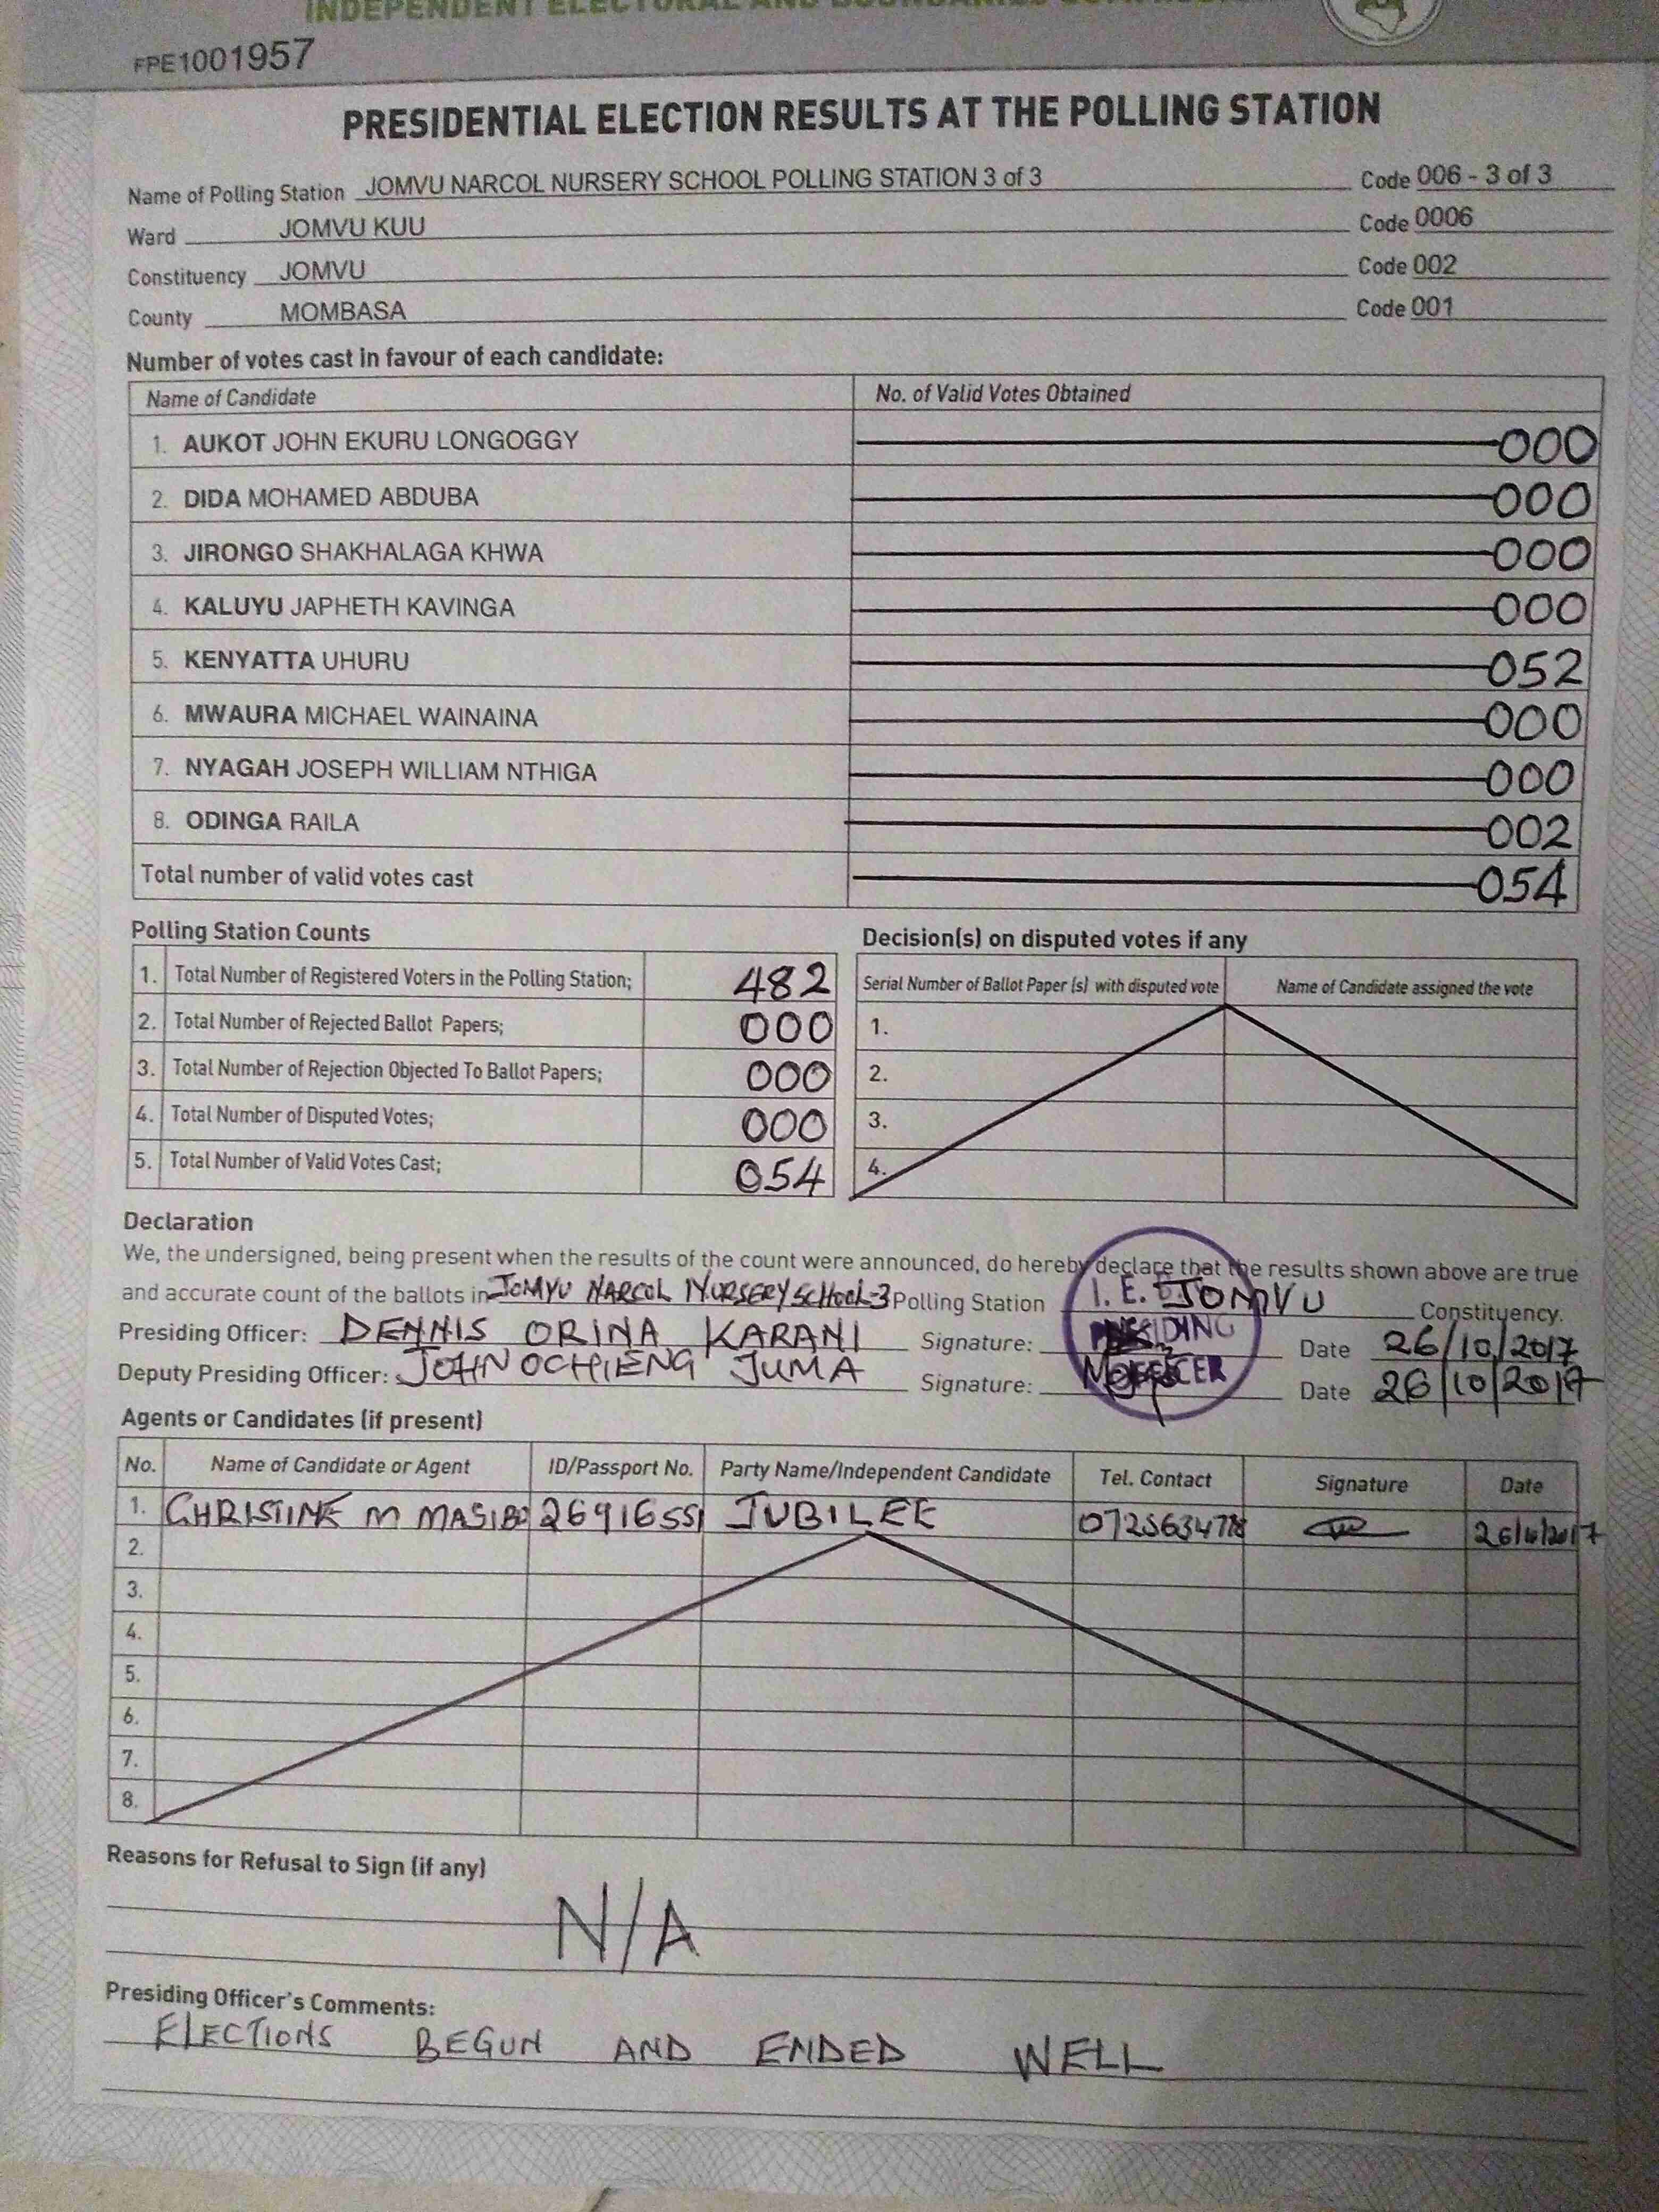 INDEPENDENT ELECTORAL AND BOUNDARIES
FPE1001957
PRESIDENTIAL ELECTION RESULTS AT THE POLLING STATION
Name of Polling Station JOMVU NARCOL NURSERY SCHOOL POLLING STATION 3 of 3 Code 006 - 3 of 3
Ward JOMVU KUU Code 0006
Constituency JOMVU Code 002
County MOMBASA Code 001
Number of votes cast in favour of each candidate:
Name of Candidate No. of Valid Votes Obtained
1. AUKOT JOHN EKURU LONGOGGY 000
2. DIDA MOHAMED ABDUBA 000
3. JIRONGO SHAKHALAGA KHWA 000
4. KALUYU JAPHETH KAVINGA 000
5. KENYATTA UHURU 052
6. MWAURA MICHAEL WAINAINA 000
7. NYAGAH JOSEPH WILLIAM NTHIGA 000
8. ODINGA RAILA 002
Total number of valid votes cast 054
Polling Station Counts
1. Total Number of Registered Voters in the Polling Station; 482
2. Total Number of Rejected Ballot Papers; 000
3. Total Number of Rejection Objected To Ballot Papers; 000
4. Total Number of Disputed Votes; 000
5. Total Number of Valid Votes Cast; 054
Decision(s) on disputed votes if any
Serial Number of Ballot Paper (s) with disputed vote Name of Candidate assigned the vote
1.
2.
3.
4.
Declaration
We, the undersigned, being present when the results of the count were announced, do hereby declare that the results shown above are true
and accurate count of the ballots in JOMVU NARCOL NURSERY SCHOOL-3 Polling Station JOMVU Constituency.
Presiding Officer: DENNIS ORINA KARANI Signature: Date 26/10/2017
Deputy Presiding Officer: JOHN OCHIENG JUMA Signature: Date 26/10/2017
I. E.
PRESIDING
OFFICER
Agents or Candidates (if present)
No. Name of Candidate or Agent ID/Passport No. Party Name/Independent Candidate Tel. Contact Signature Date
1. CHRISTINE M MASIBO 26916551 JUBILEE 26/10/2017
2.
3.
4.
5.
6.
7.
8.
Reasons for Refusal to Sign (if any)
N/A
Presiding Officer's Comments:
ELECTIONS BEGUN AND ENDED WELL